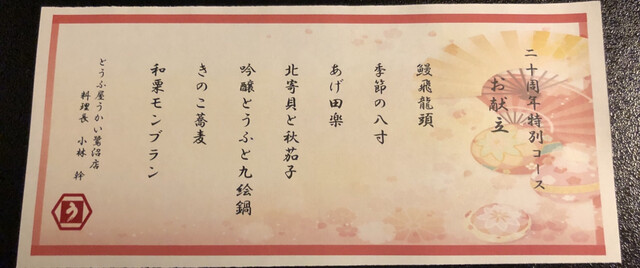 二十周年特別コース
お献立
鰻飛龍頭
季節の八寸
あげ田楽
北寄貝と秋茄子
吟醸とうふと九絵鍋
きのこ蕎麦
和栗モンブラン
とうふ屋うかい鷺沼店
料理長 小林 幹
う